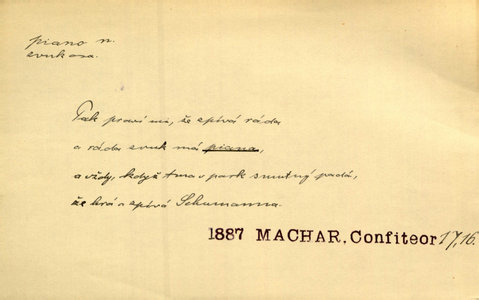 piano n.
zvuk
Tak praví mi, že zpívá ráda
a ráda zvuk má piana,
a vždy, když tma v park smutný padá,
že hrá a zpívá Schumanna.
1887 MACHAR, Confiteor 17,16.